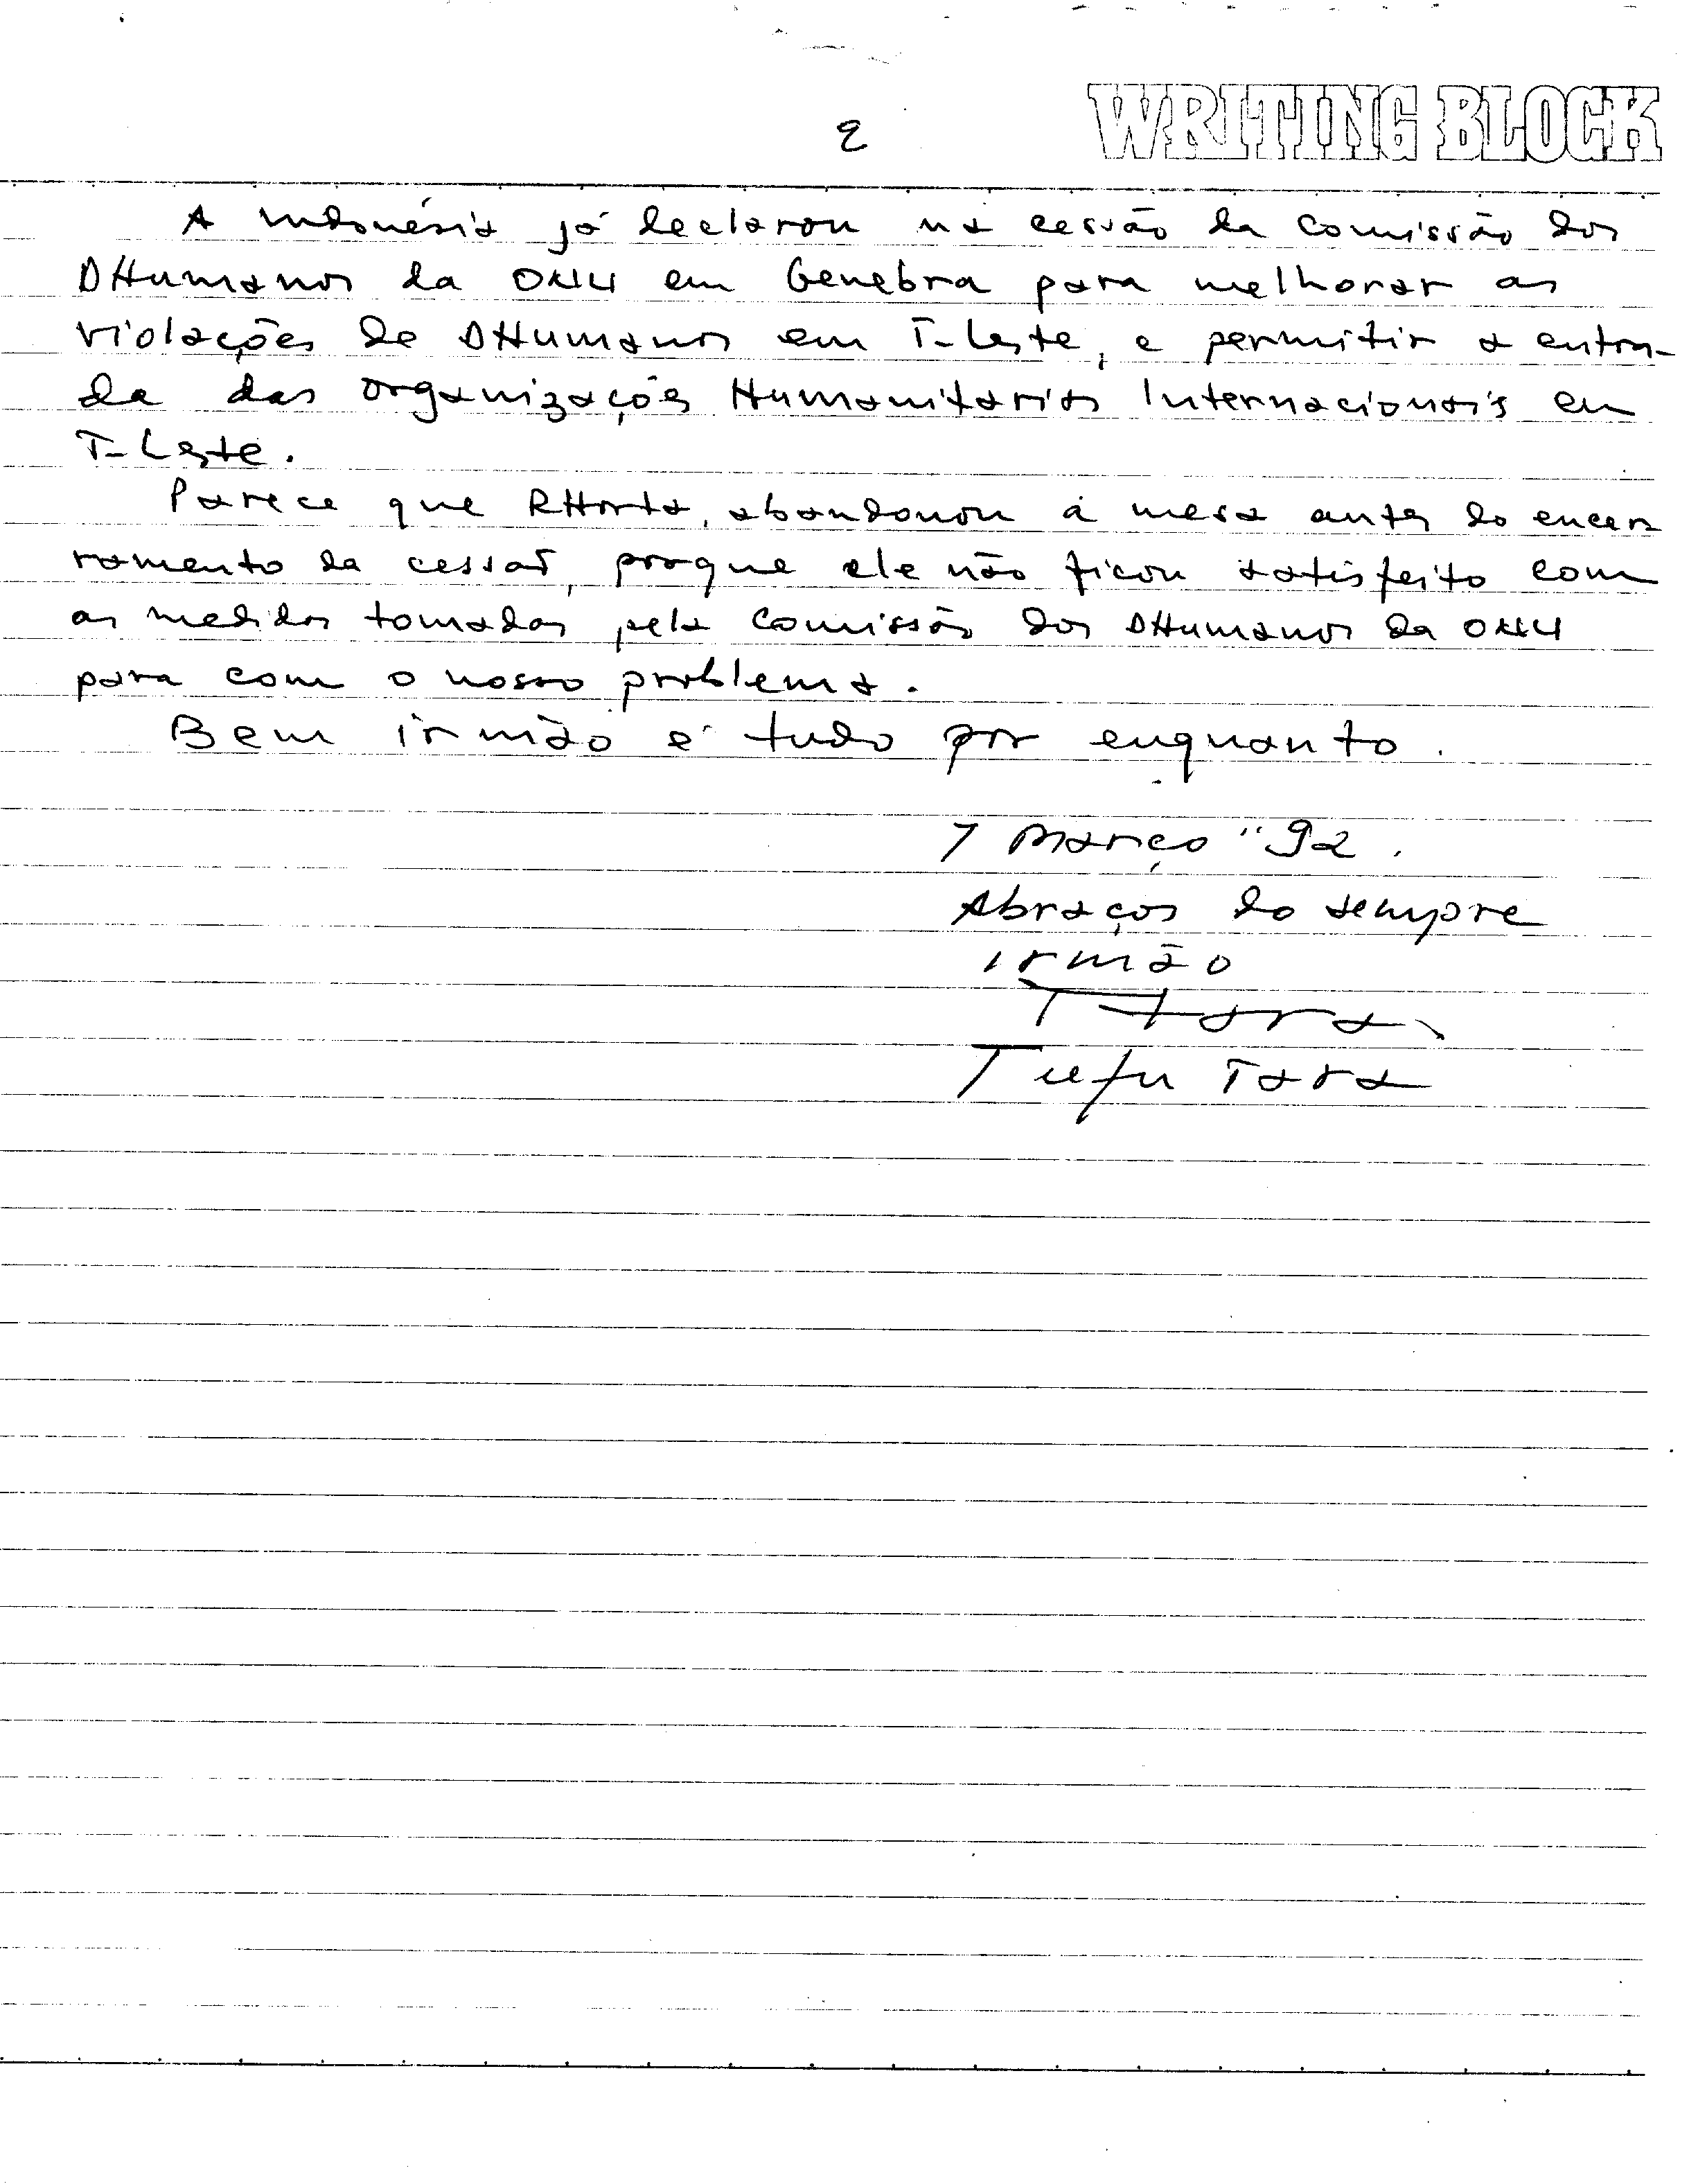 2
WRITING BLOCK
A Indonésia já declarou na cessão da Comissão dos
DHumanos da ONU em Genebra para melhorar as
violações de DHumanos em T-Leste, e permitir a entra-
da das organizações Humanitarias Internacionais em
T-Leste.
Parece que RHorta, abandonou a mesa antes do encer
ramento da cessaõ, porque ele não ficou satisfeito com
as medidas tomadas pela Comissão dos DHumanos da ONU
para com o nosso problema.
Bem irmão é tudo por enquanto.
7 Março "92.
Abraços do sempre
irmão
Tufu Tara